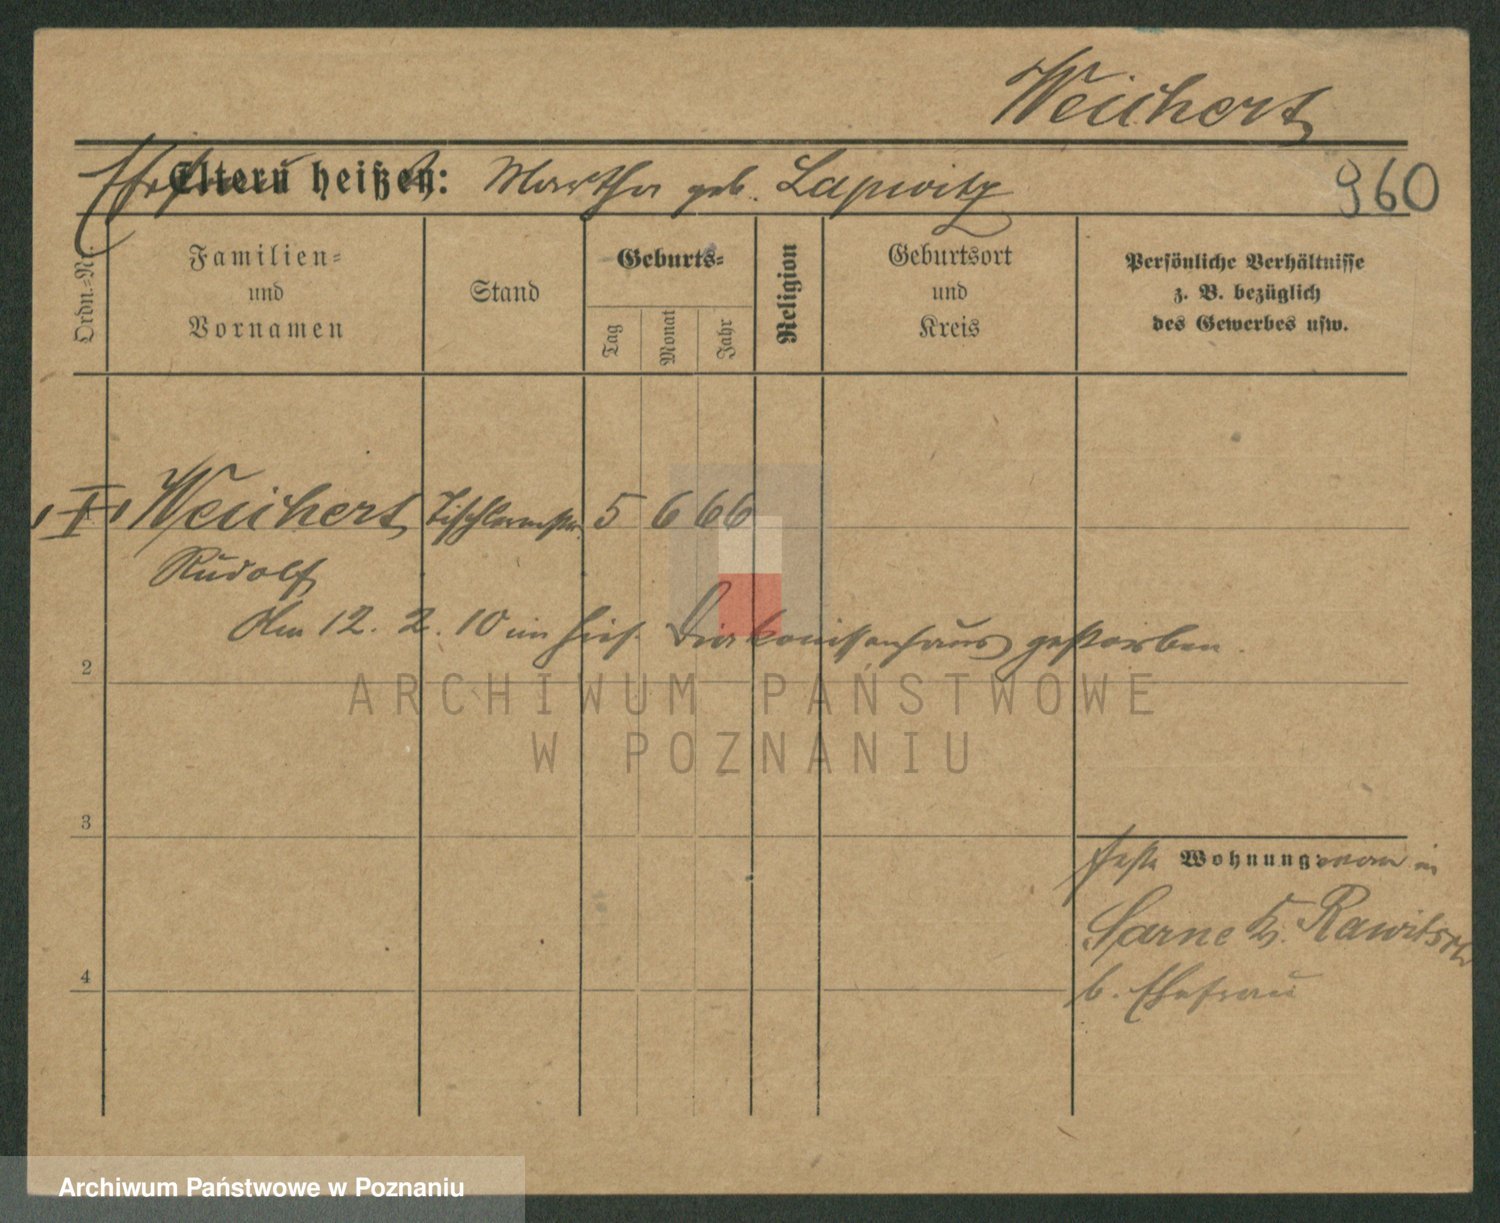 Weichert
Ehefrau
Eltern heißen: Martha geb. Lapwitz
960
Ordn.-Nr.
Familien-
und
Vornamen
Stand
Geburts-
Tag
Monat
Jahr
Religion
Geburtsort
und
Kreis
Persönliche Verhältnisse
z. B. bezüglich
des Gewerbes usw.
I Weichert Tischlermstr. 5 6 66
Rudolf
Am 12. 2. 10 im hies. Diakonissenhaus gestorben.
2
ARCHIWUM PAŃSTWOWE
W POZNANIU
3
feste Wohnung: war in
Sarne K. Rawitsch
b. Ehefrau
4
Archiwum Państwowe w Poznaniu